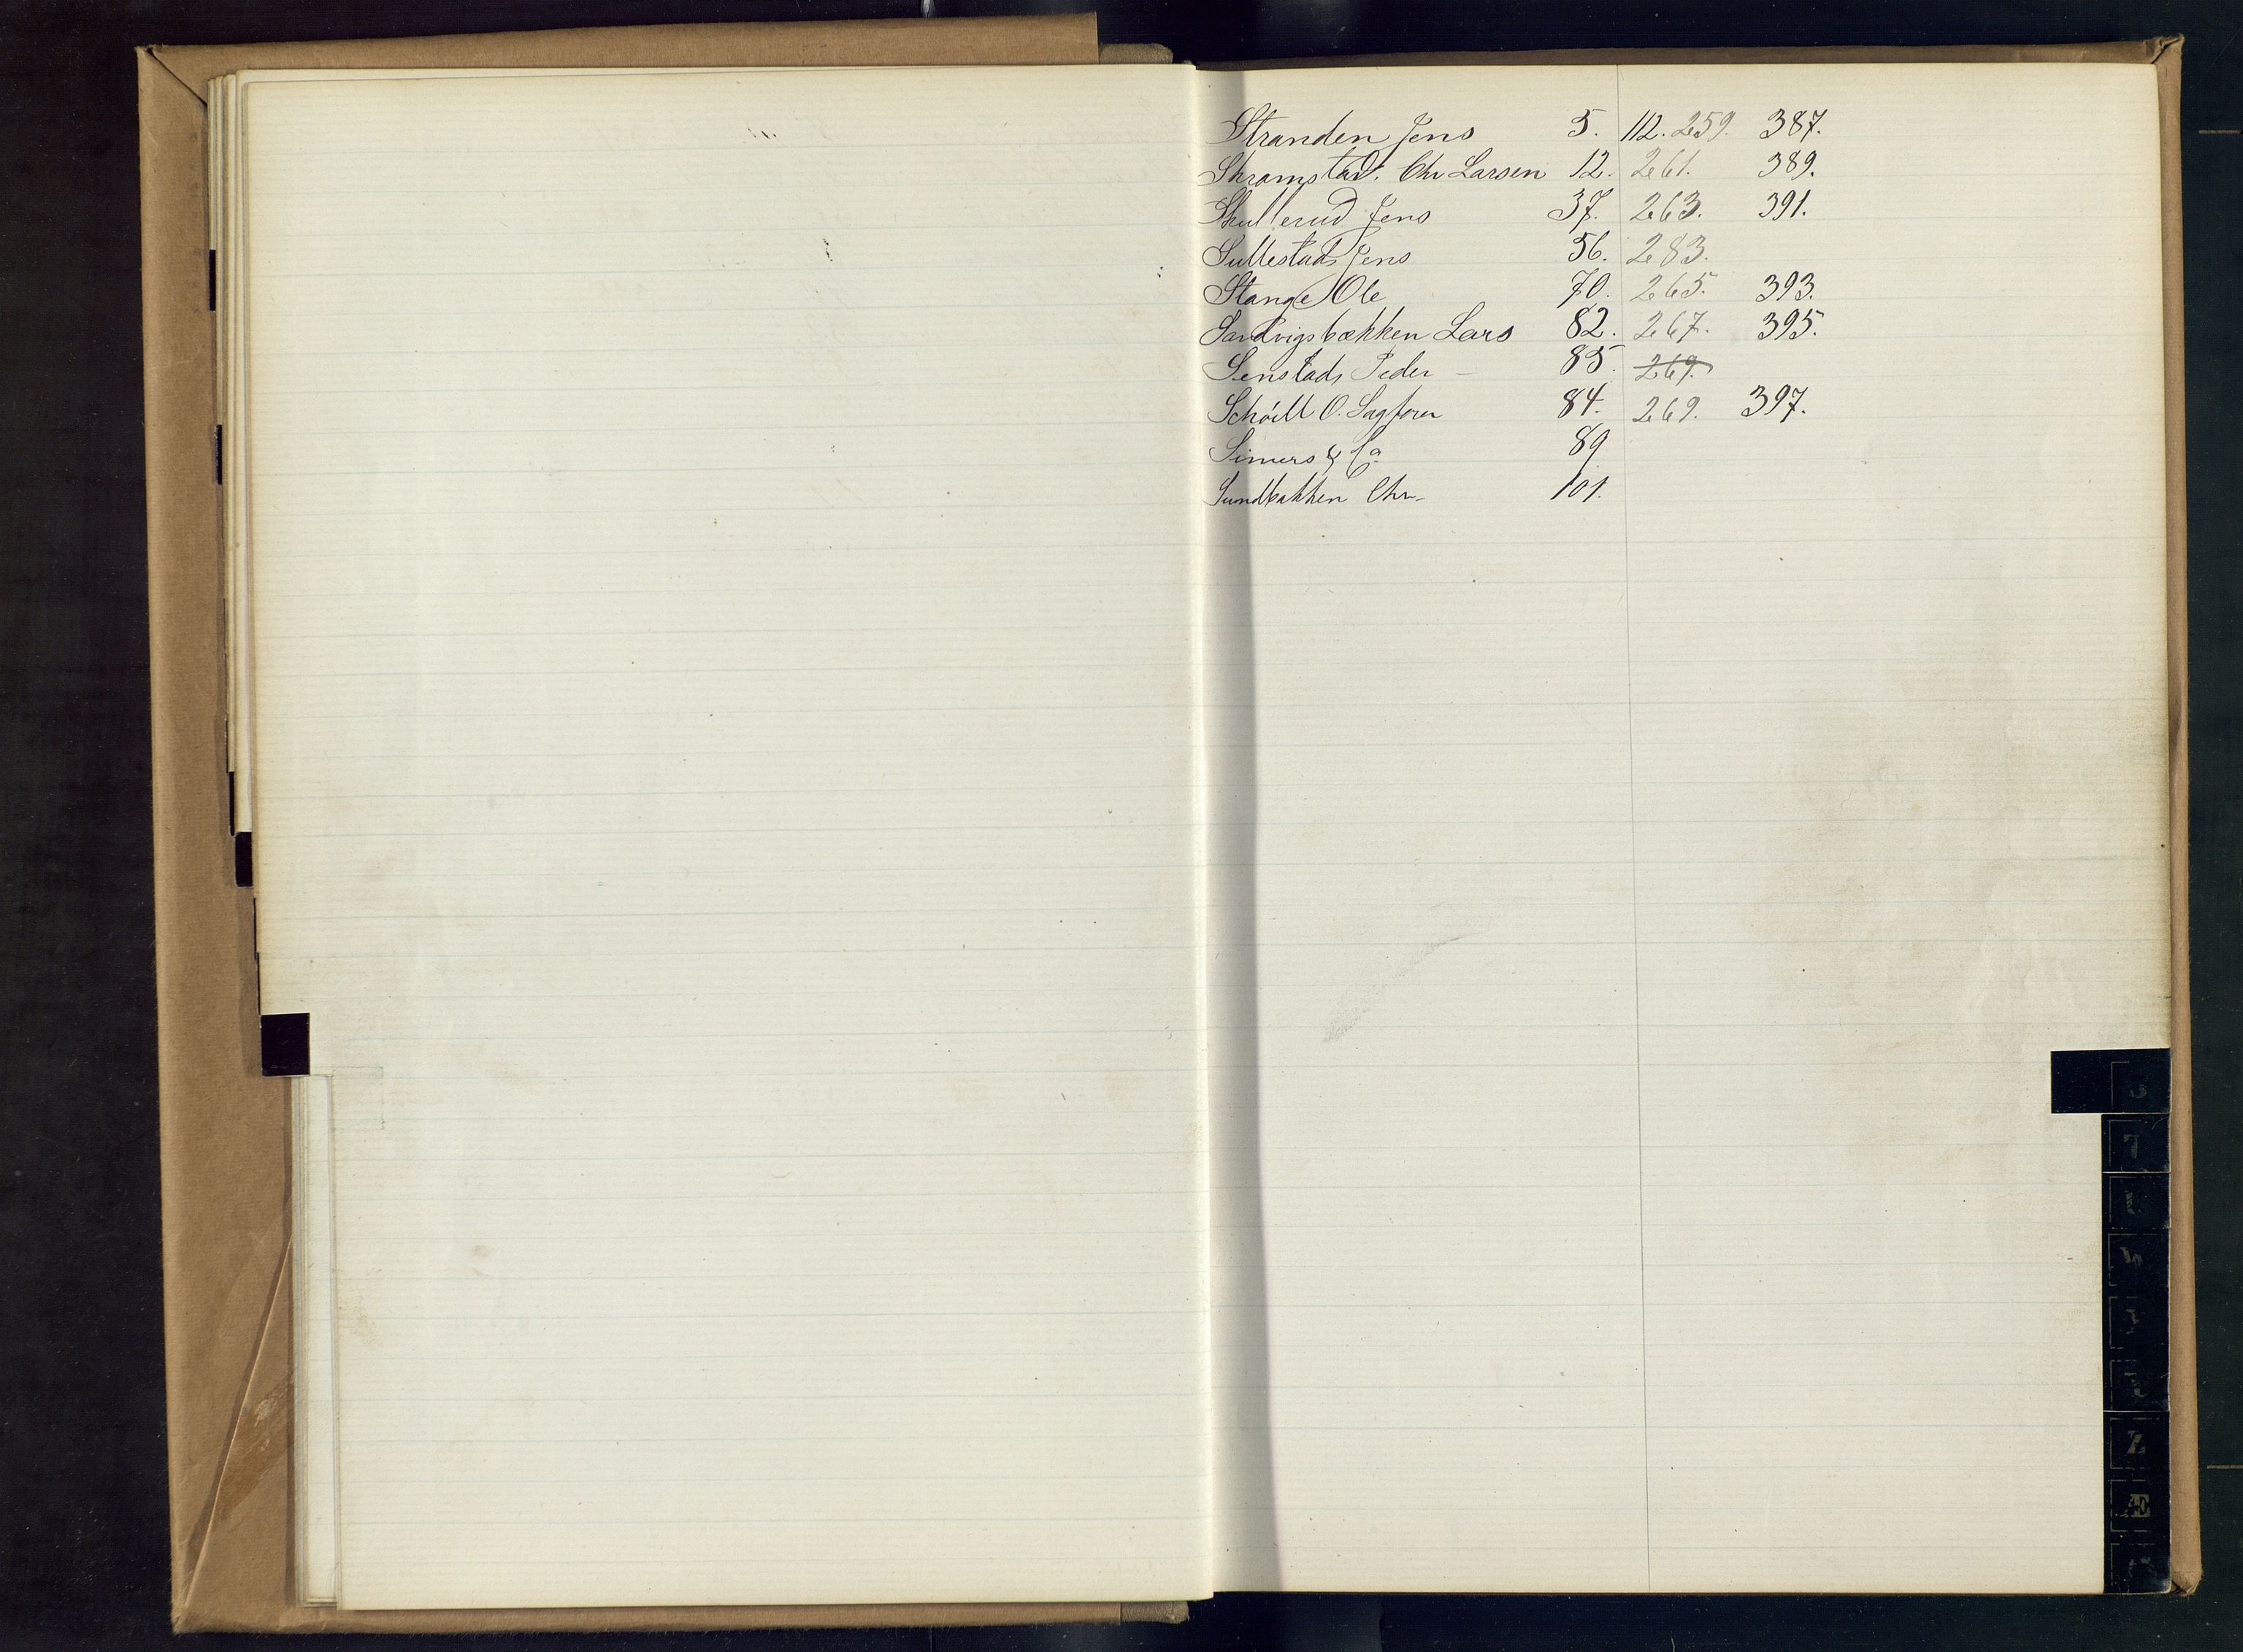 Stranden Jens 5. 112. 259. 387.
Skramstad. Chr Larsen 12. 261. 389.
Skullerud Jens 37. 263. 391.
Sullestad, Jens 56. 283.
Stange Ole 70. 265. 393.
Sandvigsbækken Lars 82. 267. 395.
Senstad, Peder – 85. 269.
Schöll O. Sagfører 84. 269. 397.
Simers & Co 89
Sundbakken Chr. 101.
S
T
Z
Æ